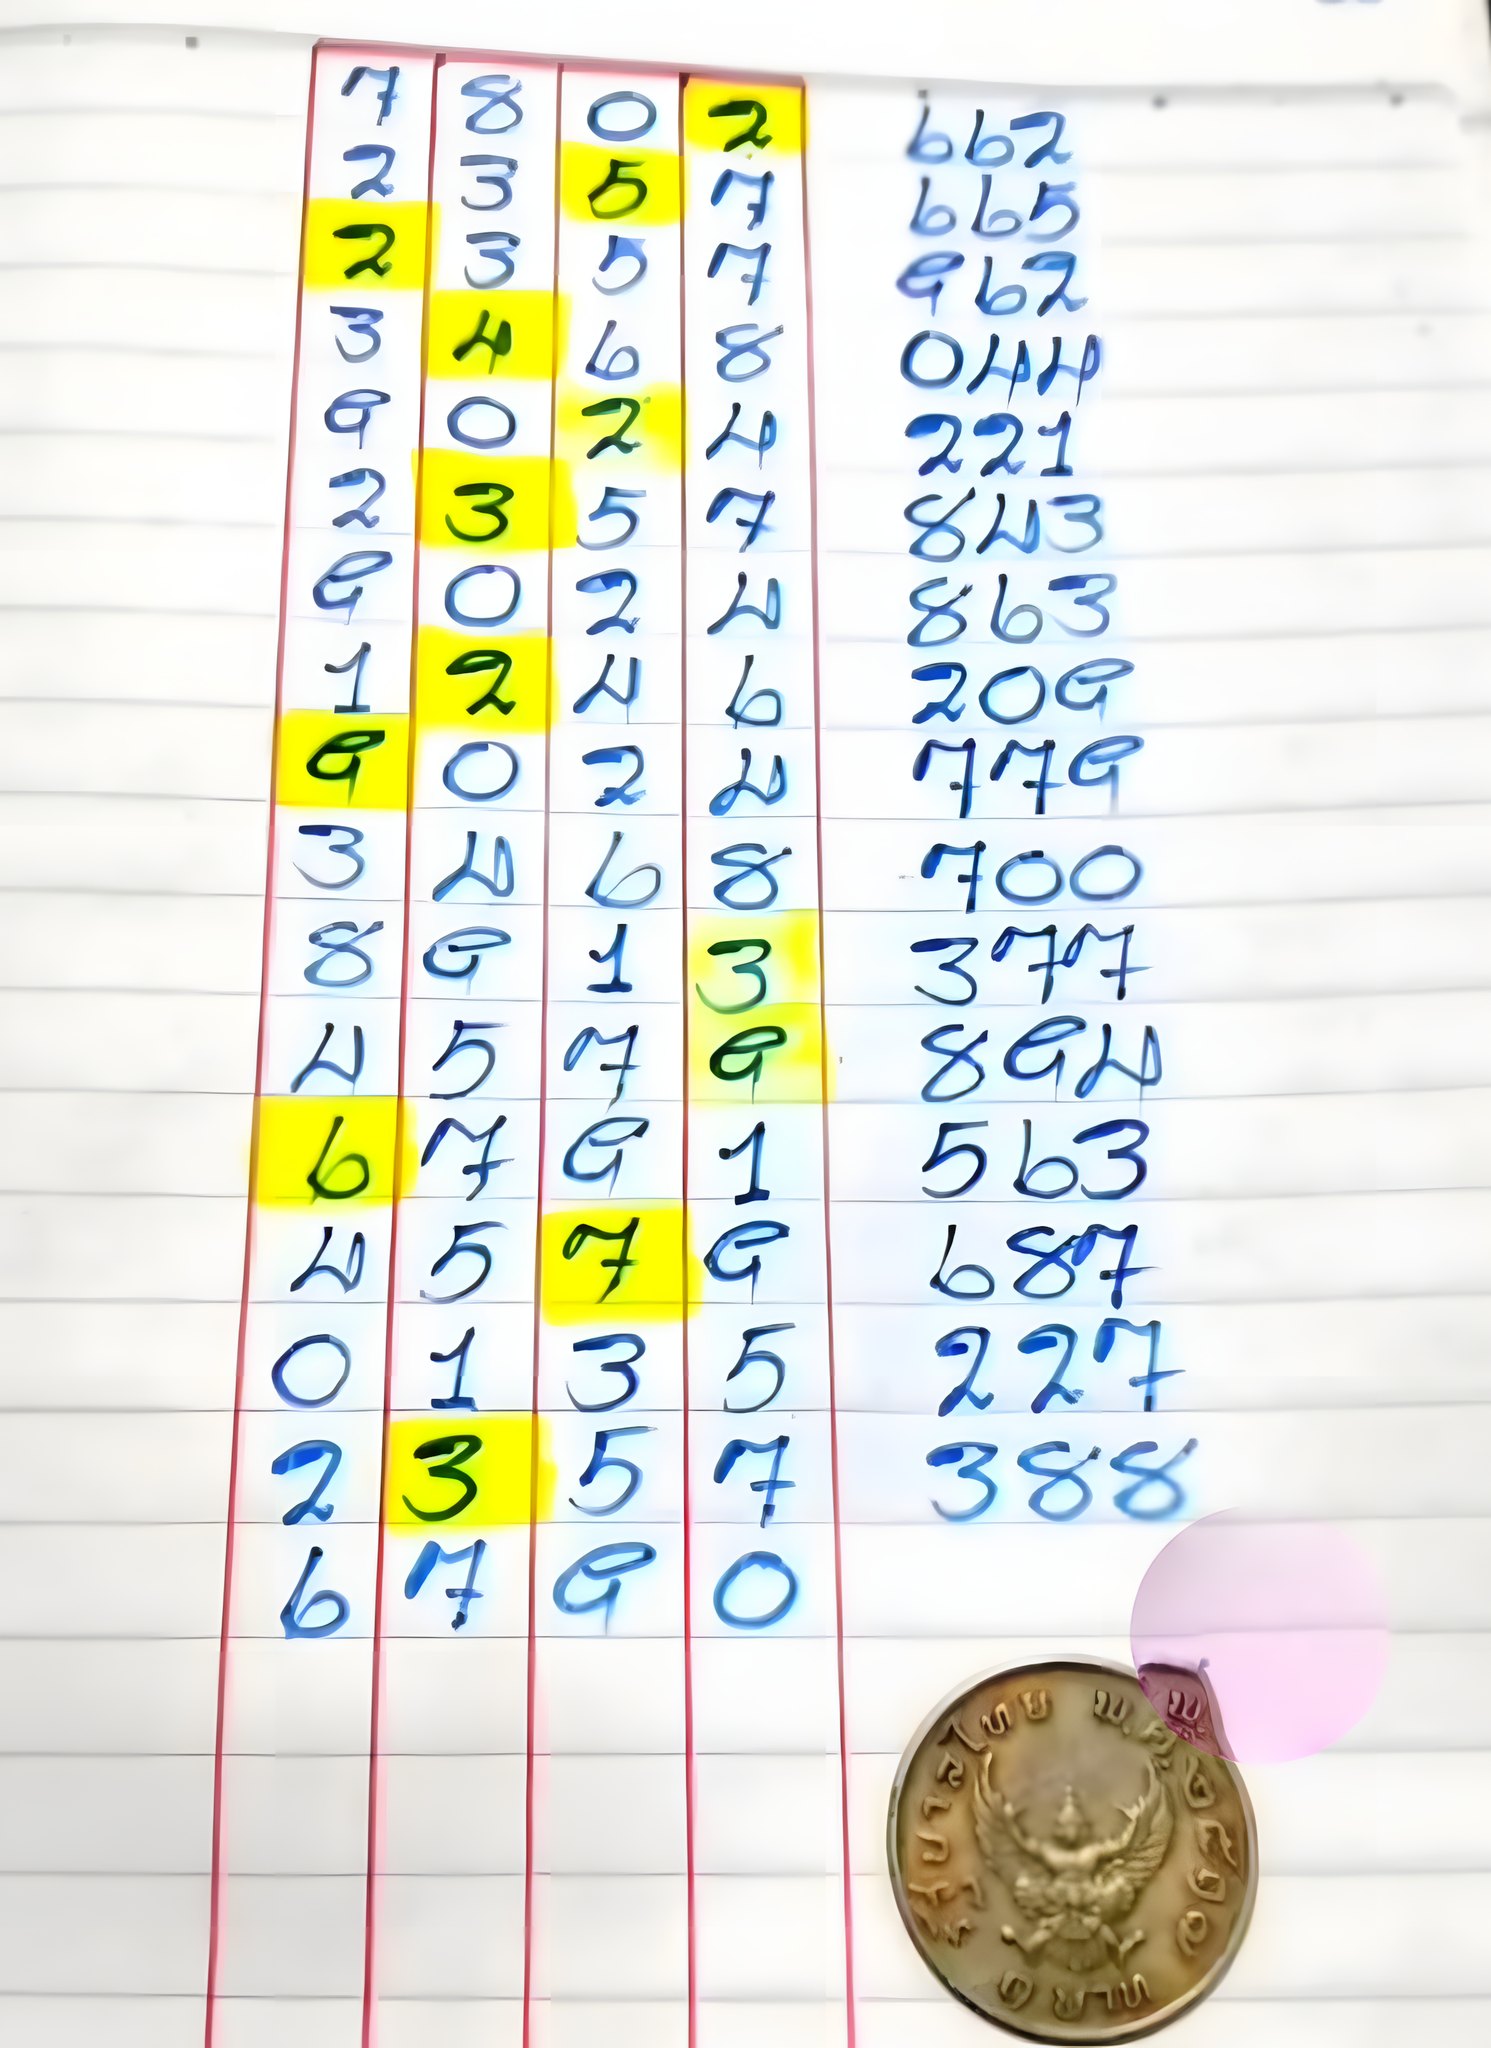 7 8 0 2 662
2 3 5 7 665
2 3 5 7 962
3 4 6 8 044
9 0 2 4 221
2 3 5 7 843
9 0 2 4 863
1 2 4 6 209
9 0 2 4 779
3 4 6 8 700
8 9 1 3 377
4 5 7 9 894
6 7 9 1 563
4 5 7 9 687
0 1 3 5 227
2 3 5 7 388
6 7 9 0
รัฐบาลไทย พ.ศ.๒๕๑๗